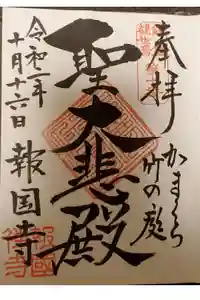 奉拝
かまくら
竹の庭
聖大悲殿
令和二年
十月十六日
報国寺